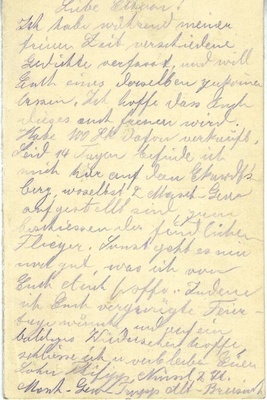 Liebe Eltern!
Ich habe während meiner
freien Zeit verschiedene
Gedichte verfasst, und will
Euch eines derselben
Ich hoffe das Euch
dieses auch freuen wird.
Habe 100 verkauft.
Seid 14 Tagen befinde ich
mich hier auf dem
berg, woselbst 2 Masch-Gew
aufgestellt sind zum
beschiessen der feindlichen
Flieger. Sonst geht es mir
und gut, was ich von
Euch auch hoffe. Indem
ich Euch vergnügte Feier-
tage wünsche und auf ein
baldiges Wiedersehen hoffe,
schliesse ich u. verbleibe Euer
Sohn
Masch-Gew Alt-Breisach